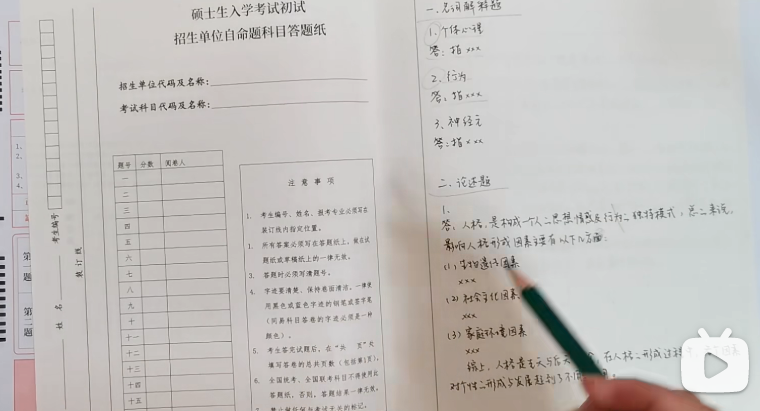 硕士生入学考试初试
招生单位自命题科目答题纸
招生单位代码及名称:
考试科目代码及名称:
考生编号
姓 名
装 订 线
题号 分数 阅卷人
一
二
三
四
五
六
七
八
九
十
十一
十二
十三
十四
十五
注 意 事 项
1. 考生编号、姓名、报考专业必须写在
装订线内指定位置。
1. 所有答案必须写在答题纸上,做在试
题纸或草稿纸上的一律无效。
3. 答题时必须写清题号。
4. 字迹要清楚、保持卷面清洁,一律使
用黑色或蓝色字迹的钢笔或签字笔
(同易科目答卷的字迹必须是一种
颜色)。
5. 考生答完试题后,在“共 页”处
填写答卷的总共页数(包括第1页)。
6. 全国统考、全国联考科目不得使用此
答题纸,否则,答题结果一律无效。
一、名词解释题
1. 个体心理
答:指xxx
2. 行为
答:指xxx
3. 神经元
答:指xxx
二、论述题
1.
答:人格,是构成一个人的思想情感及行为的独特模式,总的来说,
影响人格形成因素主要有以下几方面:
(1) 生物遗传因素
xxx
(2) 社会文化因素
xxx
(3) 家庭环境因素
xxx
综上,人格是先天与后天 在人格的形成过程
对个体的形成与发展起到了不同